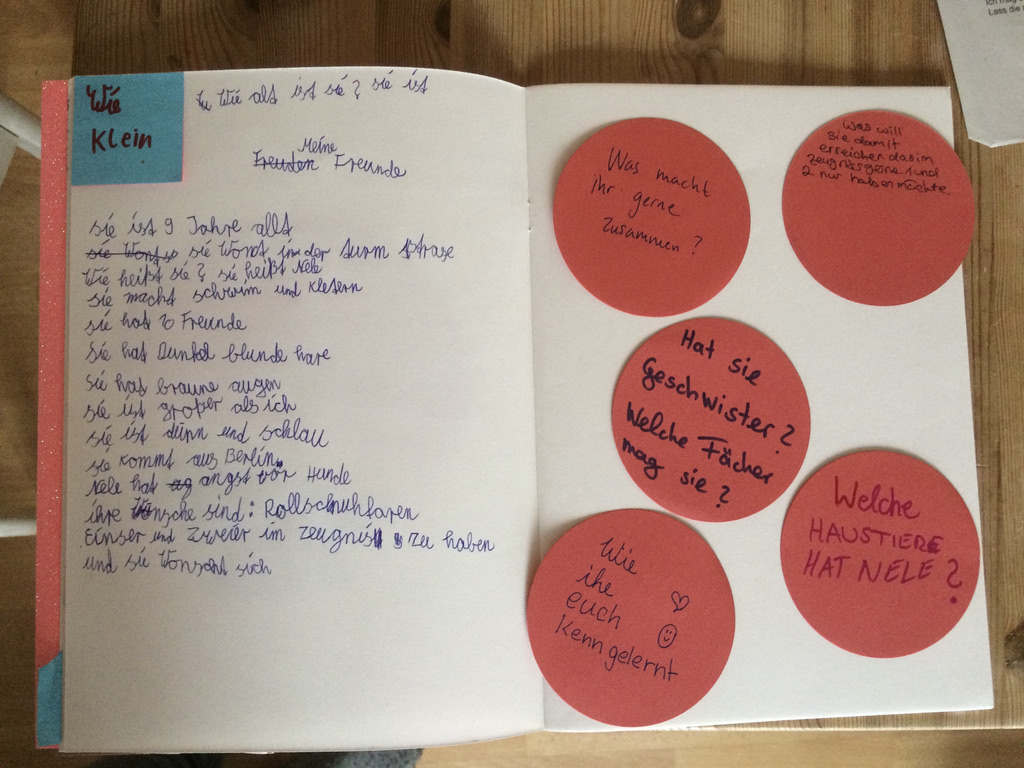 Wie
Klein
Wie alt ist sie? sie ist
Meine
Freunde
sie ist 9 Jahre allt
sie Wont sie Wont in der turm strase
Wie heißt sie? sie heißt Nele
sie macht schwim und kletern
sie hat 10 Freunde
Sie hat Dunkel blunde hare
sie hat braune augen
sie ist großer als ich
sie ist dünn und schlau
sie kommt aus Berlin.
Nele hat ag angst vor Hunde
ihre Wonsche sind: Rollschuhfaren
Einser und Zweier im Zeugnis zu haben
und sie Wonscht sich
Was macht
ihr gerne
zusammen?
Was will
sie damit
erreichen das im
Zeugnis gerne 1 und
2 nur haben möchte
Hat sie
Geschwister?
Welche Fächer
mag sie?
Welche
HAUSTIERE
HAT NELE?
Wie
ihr
euch
Kenn gelernt
Ich mag
Lass die